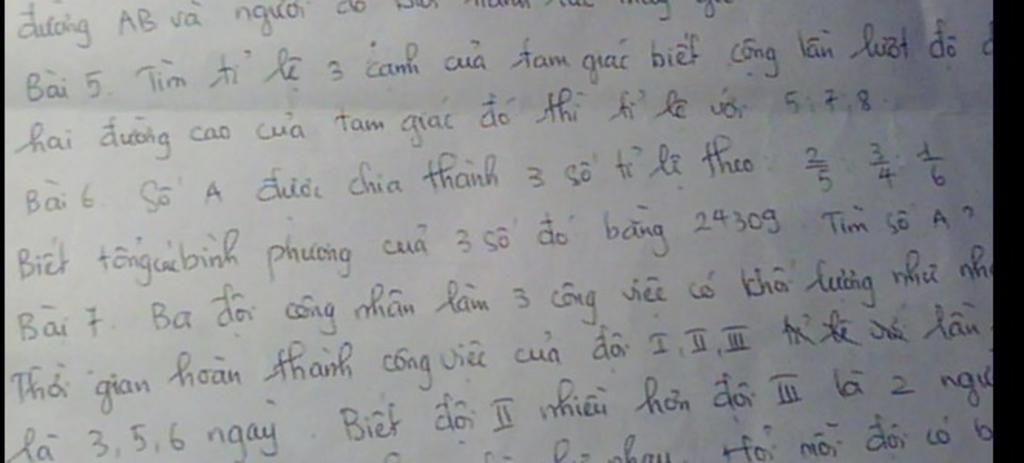 đường AB và người đó
Bài 5. Tìm tỉ lệ 3 cạnh của tam giác biết cộng lần lượt độ
hai đường cao của tam giác đó thì tỉ lệ với 5:7:8.
Bài 6. Số A được chia thành 3 số tỉ lệ theo 2/5 : 3/4 : 1/6
Biết tổng các bình phương của 3 số đó bằng 24309 Tìm số A?
Bài 7. Ba đội công nhân làm 3 công việc có khối lượng như
Thời gian hoàn thành công việc của đội I, II, III lần
là 3, 5, 6 ngày. Biết đội II nhiều hơn đội III là 2
nhau. Hỏi mỗi đội có